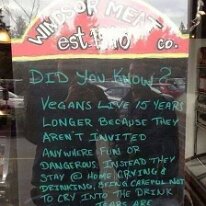 WINDSOR MEAT
est. 1910 co.
DID YOU KNOW?
VEGANS LIVE 15 YEARS
LONGER BECAUSE THEY
AREN'T INVITED
ANYWHERE FUN OR
DANGEROUS. INSTEAD THEY
STAY @ HOME CRYING &
DRINKING, BEING CAREFUL NOT
TO CRY INTO THE DRINK
TEARS ARE